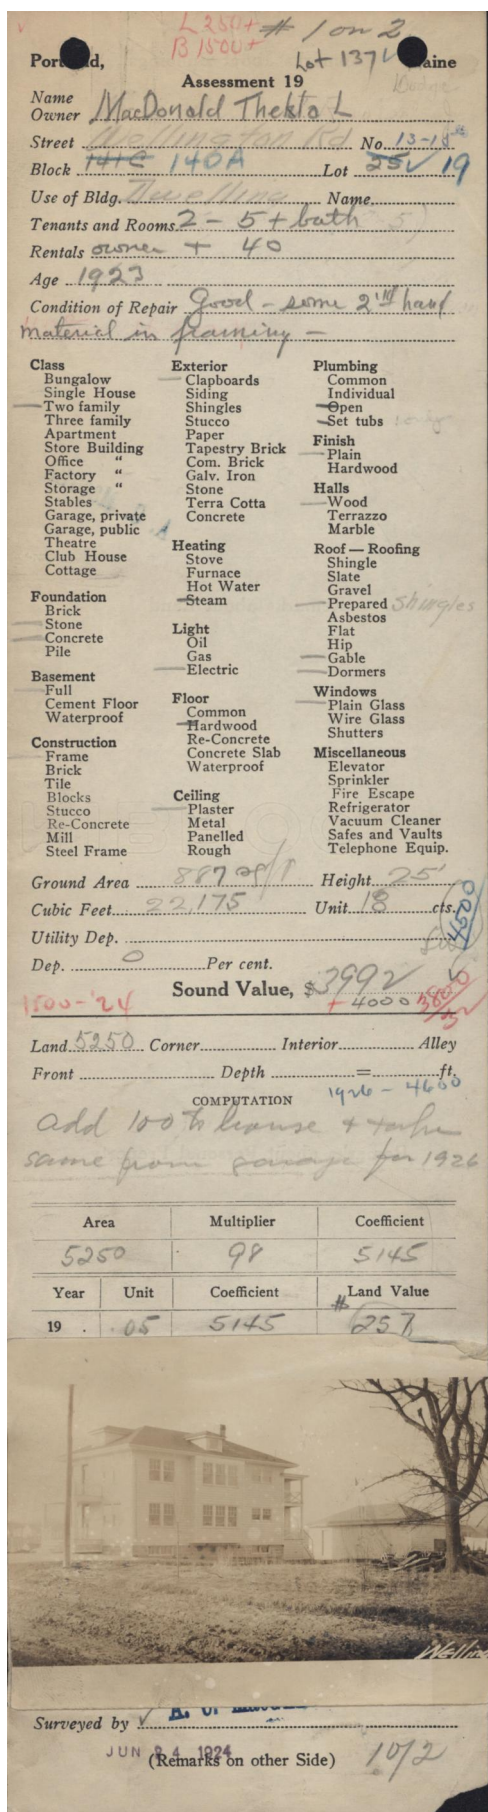 L 250+ # 1 on 2
B 1500+ Lot 137
Portland, Maine
Assessment 19
Name
Owner MacDonald Thekla L
Street Wellington Rd No. 13-15
Block 141C 140A Lot 25 19
Use of Bldg. Dwelling Name
Tenants and Rooms 2 - 5 + bath
Rentals owner + 40
Age 1923
Condition of Repair Good - some 2nd hand
material in framing -
Class
Bungalow
Single House
Two family
Three family
Apartment
Store Building
Office "
Factory "
Storage "
Stables
Garage, private
Garage, public
Theatre
Club House
Cottage
Foundation
Brick
Stone
Concrete
Pile
Basement
Full
Cement Floor
Waterproof
Construction
Frame
Brick
Tile
Blocks
Stucco
Re-Concrete
Mill
Steel Frame
Exterior
Clapboards
Siding
Shingles
Stucco
Paper
Tapestry Brick
Com. Brick
Galv. Iron
Stone
Terra Cotta
Concrete
Heating
Stove
Furnace
Hot Water
Steam
Light
Oil
Gas
Electric
Floor
Common
Hardwood
Re-Concrete
Concrete Slab
Waterproof
Ceiling
Plaster
Metal
Panelled
Rough
Plumbing
Common
Individual
Open
Set tubs
Finish
Plain
Hardwood
Halls
Wood
Terrazzo
Marble
Roof — Roofing
Shingle
Slate
Gravel
Prepared shingles
Asbestos
Flat
Hip
Gable
Dormers
Windows
Plain Glass
Wire Glass
Shutters
Miscellaneous
Elevator
Sprinkler
Fire Escape
Refrigerator
Vacuum Cleaner
Safes and Vaults
Telephone Equip.
Ground Area 887 sq ft Height 25'
Cubic Feet 22,175 Unit 18 cts.
4500
Utility Dep.
Dep. 0 Per cent.
Sound Value, $3992
1500-'24 + 4000 3800
Land 5250 Corner Interior Alley
Front Depth = ft.
COMPUTATION 1926 - 4600
add 100 to house + take
same from garage for 1926
Area Multiplier Coefficient
5250 98 5145
Year Unit Coefficient Land Value
19 . 05 5145 $257
Surveyed by
JUN 24 1924
(Remarks on other Side) 10/2